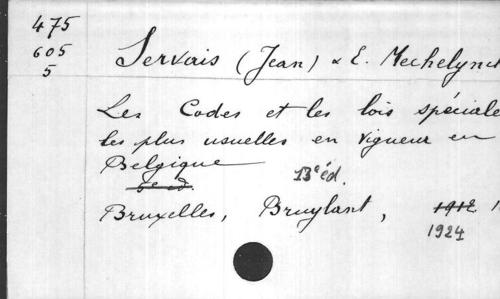 475
605
5
Servais (Jean) & E. Mechelynck
Les Codes et les lois spéciale
les plus usuelles en vigueur en
Belgique
13e éd.
Bruxelles, Bruylant, 1912
1924